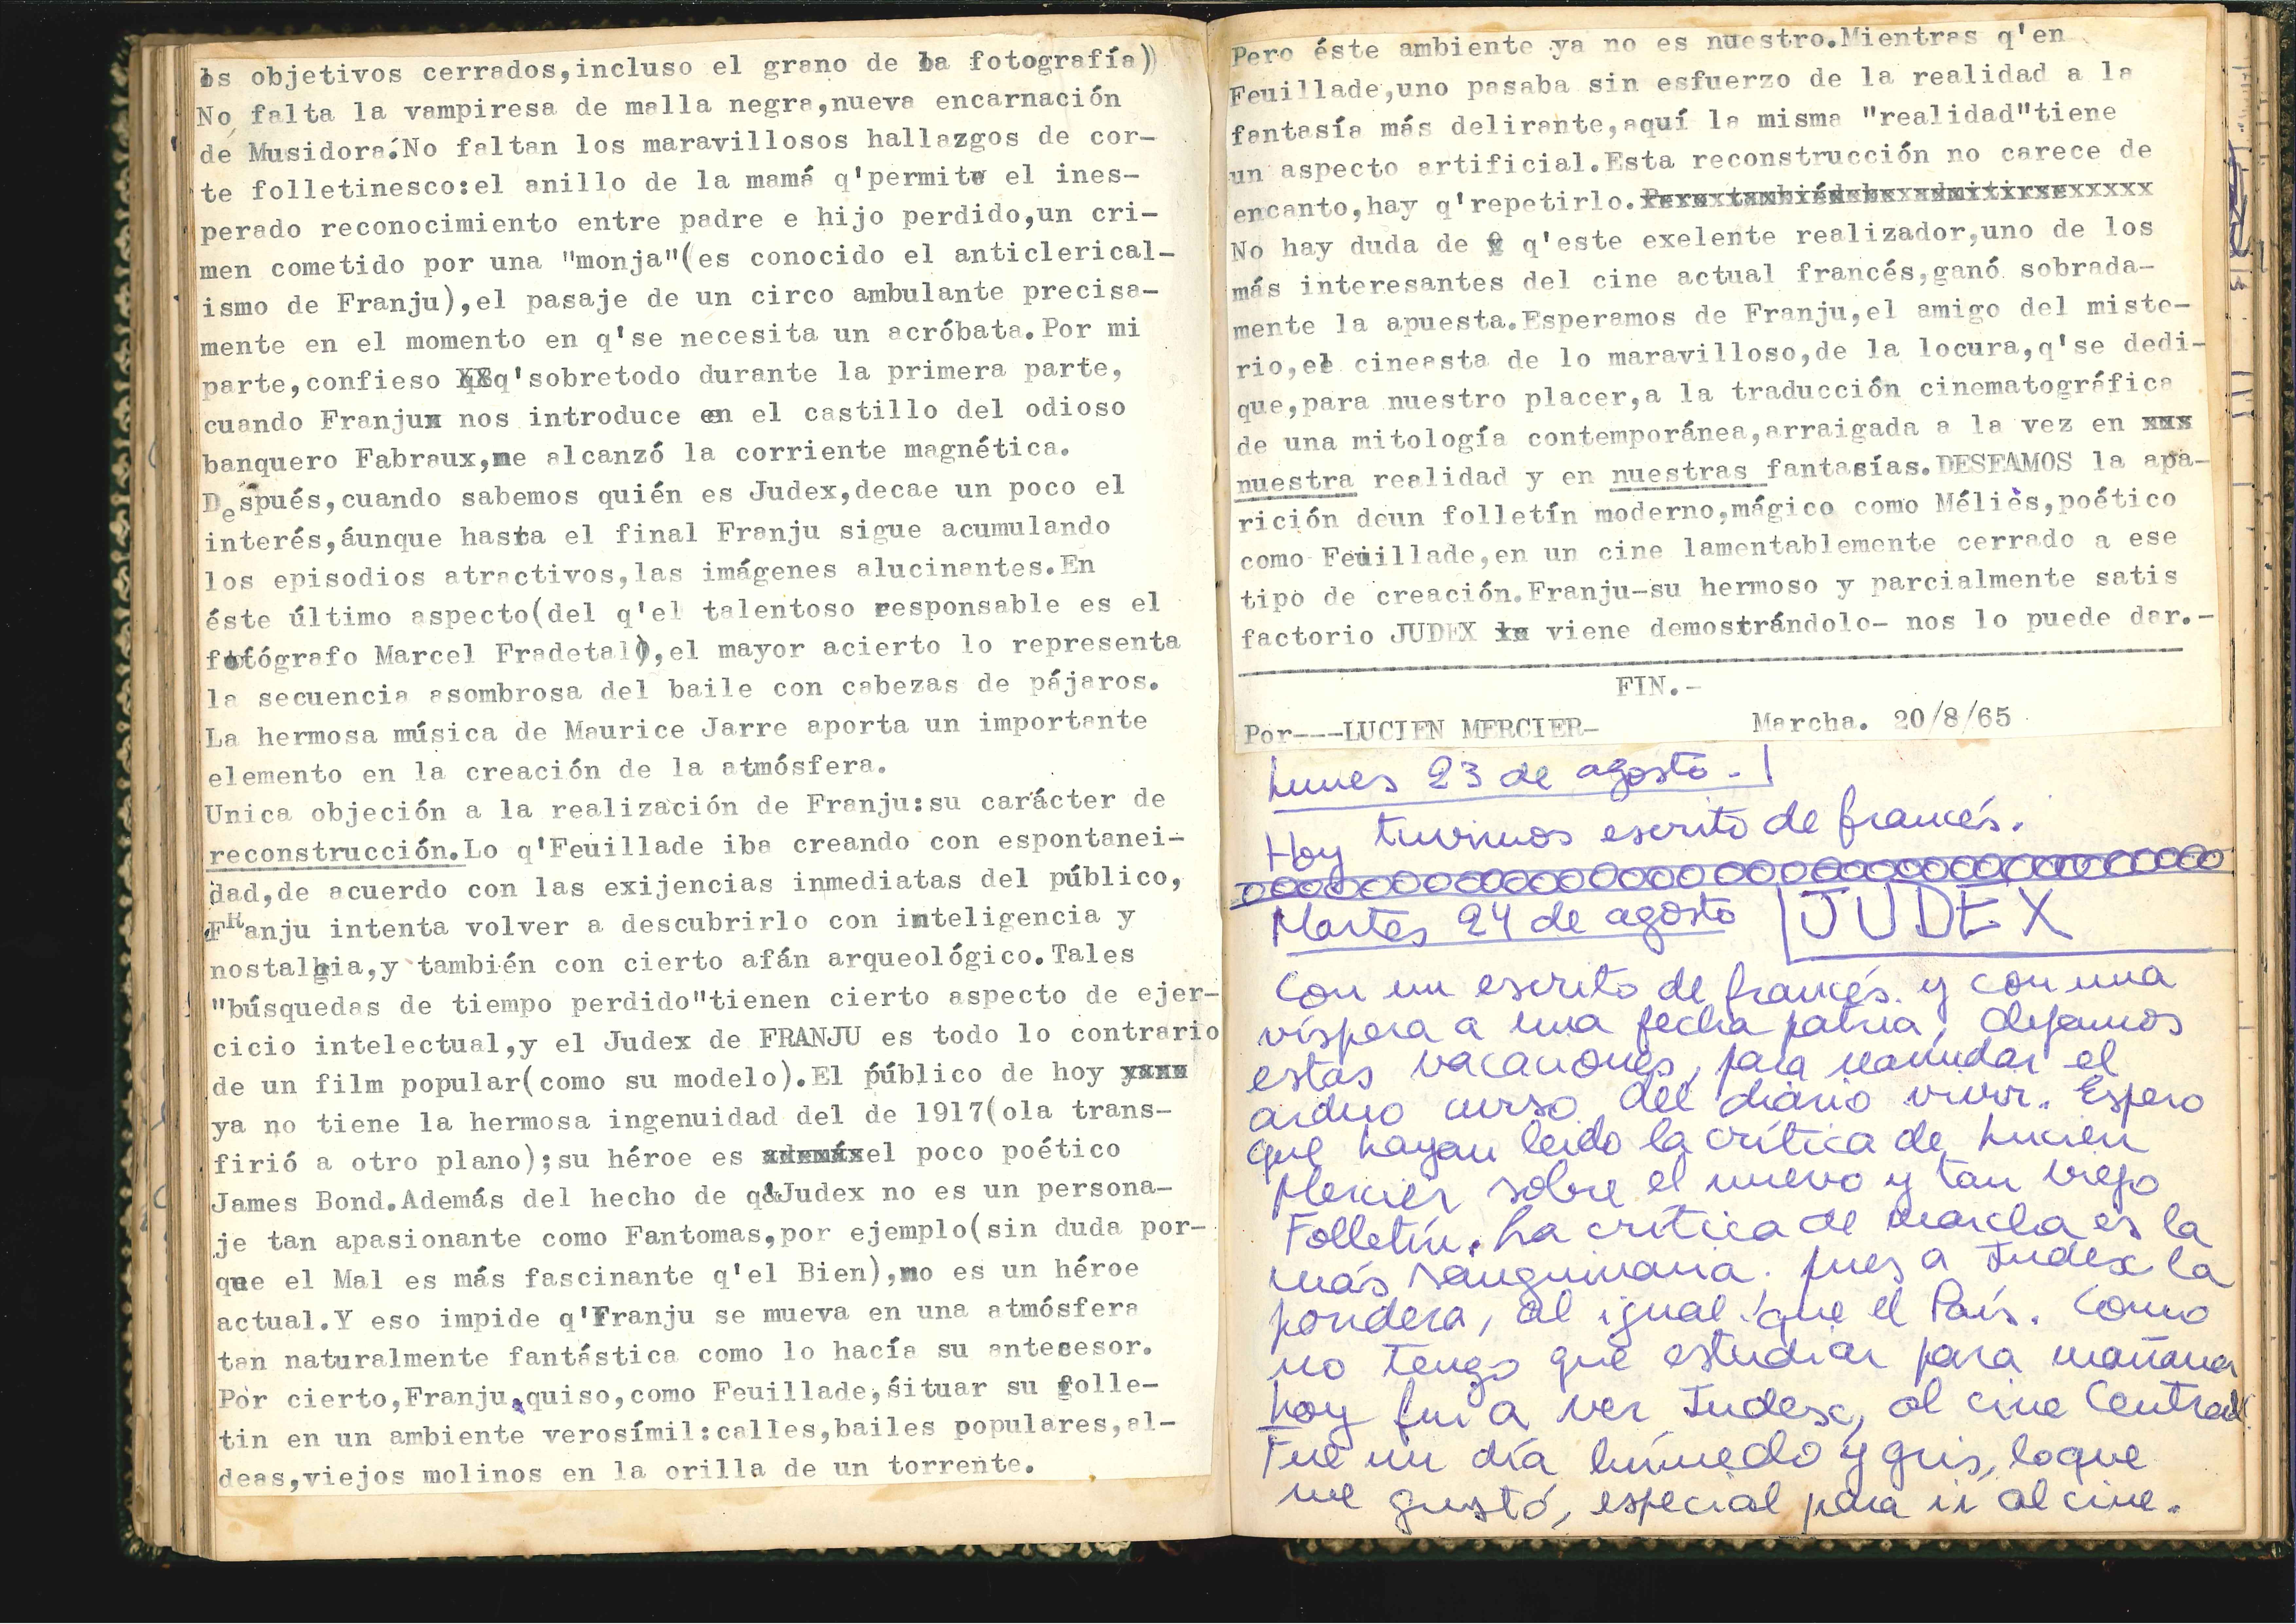 los objetivos cerrados,incluso el grano de la fotografía)
No falta la vampiresa de malla negra,nueva encarnación
de Musidora.No faltan los maravillosos hallazgos de cor-
te folletinesco:el anillo de la mamá q'permite el ines-
perado reconocimiento entre padre e hijo perdido,un cri-
men cometido por una "monja"(es conocido el anticlerical-
ismo de Franju),el pasaje de un circo ambulante precisa-
mente en el momento en q'se necesita un acróbata.Por mi
parte,confieso q'sobretodo durante la primera parte,
cuando Franju nos introduce en el castillo del odioso
banquero Fabraux,me alcanzó la corriente magnética.
Después,cuando sabemos quién es Judex,decae un poco el
interés,áunque hasta el final Franju sigue acumulando
los episodios atractivos,las imágenes alucinantes.En
éste último aspecto(del q'el talentoso responsable es el
fotógrafo Marcel Fradetal),el mayor acierto lo representa
la secuencia asombrosa del baile con cabezas de pájaros.
La hermosa música de Maurice Jarre aporta un importante
elemento en la creación de la atmósfera.
Unica objeción a la realización de Franju:su carácter de
reconstrucción.Lo q'Feuillade iba creando con espontanei-
dad,de acuerdo con las exijencias inmediatas del público,
FRanju intenta volver a descubrirlo con inteligencia y
nostalgia,y también con cierto afán arqueológico.Tales
"búsquedas de tiempo perdido"tienen cierto aspecto de ejer-
cicio intelectual,y el Judex de FRANJU es todo lo contrario
de un film popular(como su modelo).El público de hoy
ya no tiene la hermosa ingenuidad del de 1917(ola trans-
firió a otro plano);su héroe es el poco poético
James Bond.Además del hecho de q'Judex no es un persona-
je tan apasionante como Fantomas,por ejemplo(sin duda por-
que el Mal es más fascinante q'el Bien),no es un héroe
actual.Y eso impide q'Franju se mueva en una atmósfera
tan naturalmente fantástica como lo hacía su antecesor.
Por cierto,Franju,quiso,como Feuillade,situar su folle-
tin en un ambiente verosímil:calles,bailes populares,al-
deas,viejos molinos en la orilla de un torrente.
Pero éste ambiente ya no es nuestro.Mientras q'en
Feuillade,uno pasaba sin esfuerzo de la realidad a la
fantasía más delirante,aquí la misma "realidad"tiene
un aspecto artificial.Esta reconstrucción no carece de
encanto,hay q'repetirlo.
No hay duda de q'este exelente realizador,uno de los
más interesantes del cine actual francés,ganó sobrada-
mente la apuesta.Esperamos de Franju,el amigo del miste-
rio,el cineasta de lo maravilloso,de la locura,q'se dedi-
que,para nuestro placer,a la traducción cinematográfica
de una mitología contemporánea,arraigada a la vez en
nuestra realidad y en nuestras fantasías.DESEAMOS la apa-
rición deun folletín moderno,mágico como Méliès,poético
como Feuillade,en un cine lamentablemente cerrado a ese
tipo de creación.Franju-su hermoso y parcialmente satis
factorio JUDEX viene demostrándolo- nos lo puede dar.-
FIN.-
Por---LUCIEN MERCIER- Marcha. 20/8/65
Lunes 23 de agosto.-
Hoy tuvimos escrito de francés.
Martes 24 de agosto JUDEX
Con un escrito de francés. y con una
víspera a una fecha patria, dejamos
estas vacaciones, para reanudar el
arduo curso del diario vivir. Espero
que hayan leído la crítica de Lucien
Mercier sobre el nuevo y tan viejo
Folletín. La crítica de Marcha es la
más sanguinaria. pues a Judex la
pondera, al igual que el País. Como
no tengo que estudiar para mañana
hoy fui a ver Judex, al cine Central.
Fue un día húmedo y gris, loque
me gustó, especial para ir al cine.